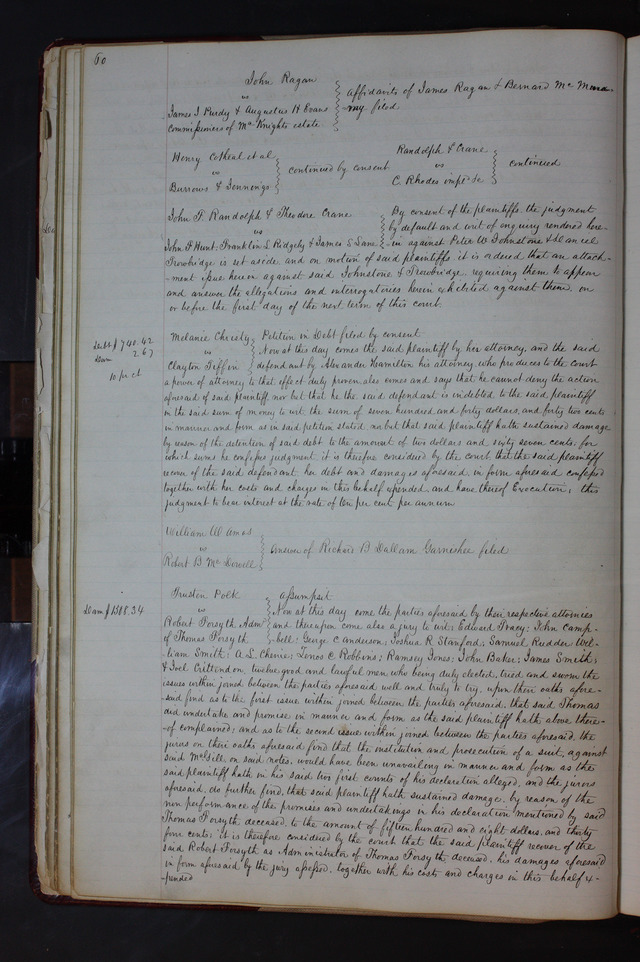 60
John Ragan
vs
James J. Purdy & Augustus H. Evans
commissioners of McKnights estate
affidavits of James Ragan & Bernard Mc
my filed
Henry Cotheal et al
vs
Burrows & Jennings
continued by consent
Randolph & Crane
vs
C. Rhodes impd &c
continued
John F. Randolph & Theodore Crane
vs
John F Hunt, Franklin L Ridgely & James S. Lane
By consent of the plaintiffs, the judgment
by default and writ of enquiry rendered here-
in against Peter W Johnstone &
Trowbridge is set aside, and on motion of said plaintiffs it is ordered that an attach-
ment issue herein against said Johnstone & Trowbridge, requiring them to appear
and answer the allegations and interrogatories herein exhibited against them, on
or before the first day of the next term of this court.
Debt $ 740.42
Dam 2.67
10 pr ct
Melanie Christy
vs
Clayton Tiffin
Petition in Debt filed by consent
Now at this day comes the said plaintiff by her attorney, and the said
defendant by Alexander Hamilton his attorney who produces to the court
a power of attorney to that effect duly proven, also comes and says that he cannot deny the action
aforesaid of said plaintiff nor but that he the said defendant is indebted to the said plaintiff
in the said sum of money to wit, the sum of seven hundred and forty dollars, and forty two cents
in manner and form as in said petition stated, nor but that said plaintiff hath sustained damage
by reason of the detention of said debt to the amount of two dollars and sixty seven cents; for
which sums he confesses judgment, it is therefore considered by the court that the said plaintiff
recover of the said defendant, her debt and damages aforesaid in form aforesaid confessed
together with her costs and charges in this behalf expended, and have thereof Execution; this
judgment to bear interest at the rate of ten per cent per annum
William W Amos
vs
Robert B McDowell
Answer of Richard B Dallam Garnishee filed
Dam $ 1508.34
Trusten Polk
vs
Robert Forsyth Admr
of Thomas Forsyth
Assumpsit
Now at this day come the parties aforesaid by their respective attornies
and thereupon come also a jury to wit; Edward Tracy; John Camp-
-bell; George C Anderson; Joshua R Stanford; Samuel Rudder Wil-
liam Smith; A. L. Chenie; Zenos C Robbins; Ramsey Jones; John Baker; James Smith;
& Joel Crittendon, twelve good and lawful men who being duly elected, tried and sworn the
issues within joined between the parties aforesaid well and truly to try, upon their oaths afore-
said find as to the first issue within joined between the parties aforesaid, that said Thomas
did undertake and promise in manner and form as the said plaintiff hath above there-
-of complained; and as to the second issue within joined between the parties aforesaid, the
jurors on their oaths aforesaid find that the institution and prosecution of a suit, against
said McGill, on said notes, would have been unavailing in manner and form as the
said plaintiff hath in his said two first counts of his declaration alleged, and the jurors
aforesaid, do further find, that said plaintiff hath sustained damage, by reason of the
non performance of the promises and undertakings in his declaration mentioned by said
Thomas Forsyth deceased, to the amount of fifteen hundred and eight dollars, and thirty
four cents; it is therefore considered by the court that the said plaintiff recover of the
said Robert Forsyth as Administrator of Thomas Forsyth deceased, his damages aforesaid
in form aforesaid by the jury assessed, together with his costs and charges in this behalf ex-
-pended